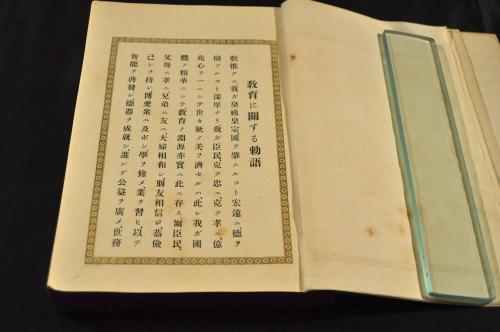 教育に關する勅語
朕惟フニ我ガ皇祖皇宗國ヲ肇ムルコト宏遠ニ德ヲ
樹ツルコト深厚ナリ我ガ臣民克ク忠ニ克ク孝ニ、億
兆心ヲ一ニシテ世々厥ノ美ヲ濟セルハ此レ我ガ國
體ノ精華ニシテ教育ノ淵源亦實ニ此ニ存ス爾臣民、
父母ニ孝ニ兄弟ニ友ニ夫婦相和シ朋友相信ジ恭儉
己レヲ持シ博愛衆ニ及ボシ學ヲ修メ業ヲ習ヒ以テ
智能ヲ啓發シ德器ヲ成就シ進ンデ公益ヲ廣メ世務